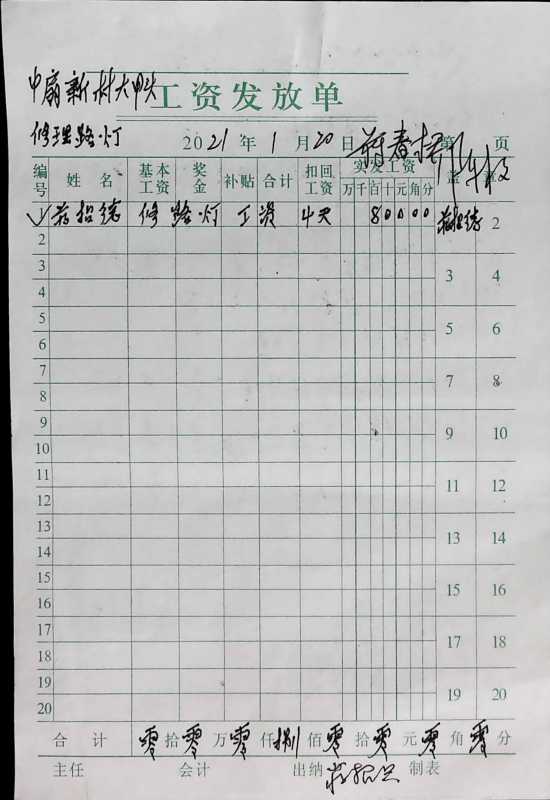 中扇新村大甲头
工资发放单
修理路灯
2021年1月20日 第 页
编号 姓名 基本工资 奖金 补贴 合计 扣回工资 实发工资 盖章
万 千 百 十 元 角 分
1 招德 修路灯工资 4天 80000 2
2
3 3 4
4
5 5 6
6
7 7 8
8
9 9 10
10
11 11 12
12
13 13 14
14
15 15 16
16
17 17 18
18
19 19 20
20
合计 零拾零万零仟捌佰零拾零元零角零分
主任 会计 出纳 制表